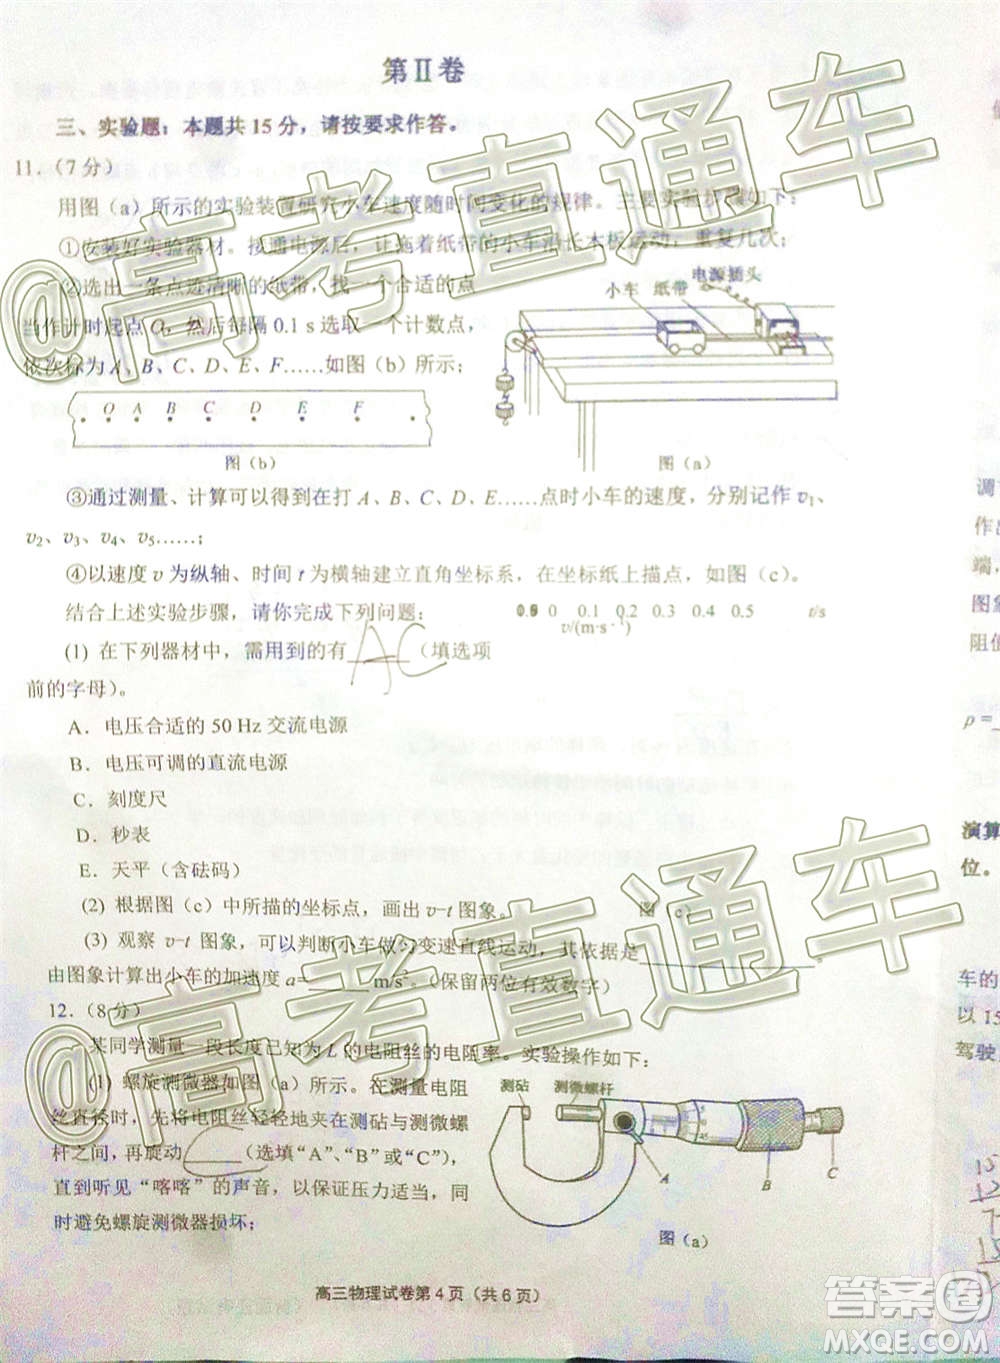 第Ⅱ卷
三、实验题：本题共15分，请按要求作答。
11.（7分）
用图（a）所示的实验装置研究小车速度随时间变化的规律。主要实验步骤如下：
①安装好实验器材。接通电源后，让拖着纸带的小车沿长木板运动，重复几次；
②选出一条点迹清晰的纸带，找一个合适的点
当作计时起点O，然后每隔0.1 s选取一个计数点，
依次标为A、B、C、D、E、F……如图（b）所示；
电源插头
小车 纸带
O A B C D E F
图（b）
图（a）
③通过测量、计算可以得到在打A、B、C、D、E……点时小车的速度，分别记作v₁、
v₂、v₃、v₄、v₅……；
④以速度v为纵轴、时间t为横轴建立直角坐标系，在坐标纸上描点，如图（c）。
结合上述实验步骤，请你完成下列问题：
0 0.1 0.2 0.3 0.4 0.5 t/s
v/(m·s⁻¹)
(1) 在下列器材中，需用到的有 AC （填选项
前的字母）。
A．电压合适的50 Hz交流电源
B．电压可调的直流电源
C．刻度尺
D．秒表
E．天平（含砝码）
(2) 根据图（c）中所描的坐标点，画出v-t图象。
图（c）
(3) 观察v-t图象，可以判断小车做匀变速直线运动，其依据是______。
由图象计算出小车的加速度a=______m/s²。（保留两位有效数字）
12.（8分）
某同学测量一段长度已知为L的电阻丝的电阻率。实验操作如下：
(1) 螺旋测微器如图（a）所示。在测量电阻
丝直径时，先将电阻丝轻轻地夹在测砧与测微螺
杆之间，再旋动______（选填“A”、“B”或“C”），
直到听见“喀喀”的声音，以保证压力适当，同
时避免螺旋测微器损坏；
测砧 测微螺杆
A B C
图（a）
高三物理试卷第4页（共6页）
调
作出
端，
图象
阻值
ρ=
演算
位。
车的
以15
驾驶
@高考直通车
@高考直通车
答案圈
MXQE.COM